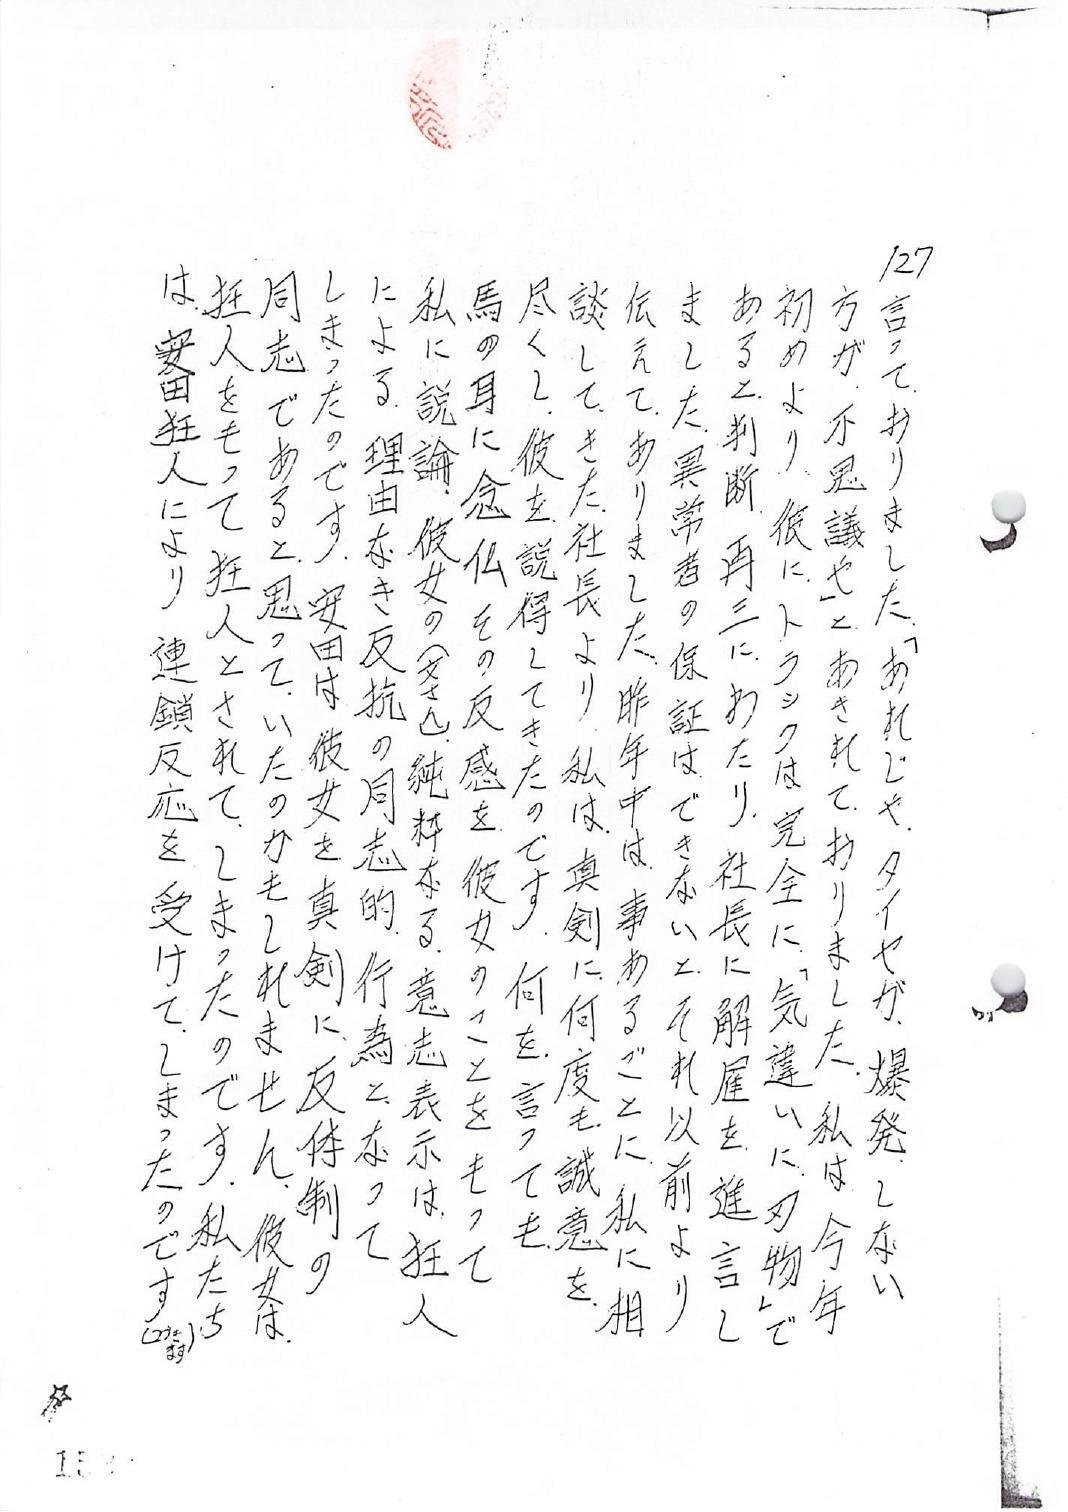 127
言って、おりました。「あれじゃ、タイヤが、爆発、しない
方が、不思議や」と、あきれて、おりました。私は、今年
初めより、彼に、トラックは完全に、「気違いに、刃物」で
あると、判断、再三に、わたり、社長に解雇を、進言し
ました。異常者の保証は、できないと、それ以前より
伝えて、ありました。昨年中は、事あるごとに、私に相
談して、きた、社長より、私は、真剣に、何度も、誠意を、
尽くし、彼を、説得してきたのです。何を、言っても、
馬の耳に念仏その反感を、彼女のことをもって
私に説諭、彼女の(父さん)、純粋なる、意志表示は、狂人
による、理由なき反抗の同志的、行為と、なって
しまったのです。安田は、彼女を、真剣に、反体制の
同志であると、思って、いたのかもしれません、彼女は、
狂人をもって狂人とされて、しまったのです。私たち
は、安田狂人により連鎖反応を受けて、しまったのです
(つづきます)